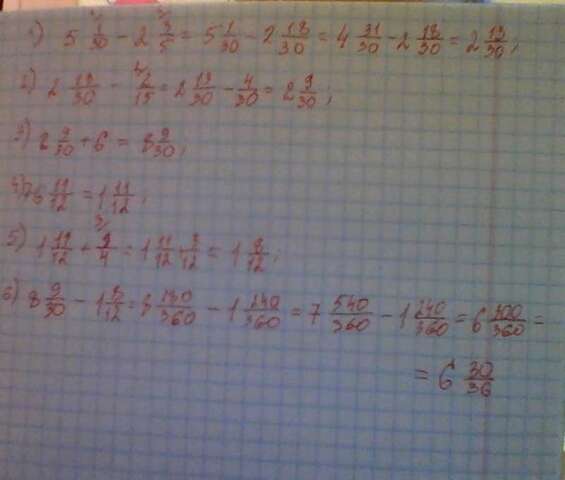 1) 5 1/30 - 2 3/5 = 5 1/30 - 2 18/30 = 4 31/30 - 2 18/30 = 2 13/30;
2) 2 13/30 - 2/15 = 2 13/30 - 4/30 = 2 9/30;
3) 2 9/30 + 6 = 8 9/30;
4) 6 11/12 = 1 11/12;
5) 1 11/12 + /4 = 1 11/12 + /12 = 1 8/12;
6) 8 9/30 - 1 8/12 = 8 180/360 - 1 240/360 = 7 540/360 - 1 240/360 = 6 300/360 =
= 6 30/36